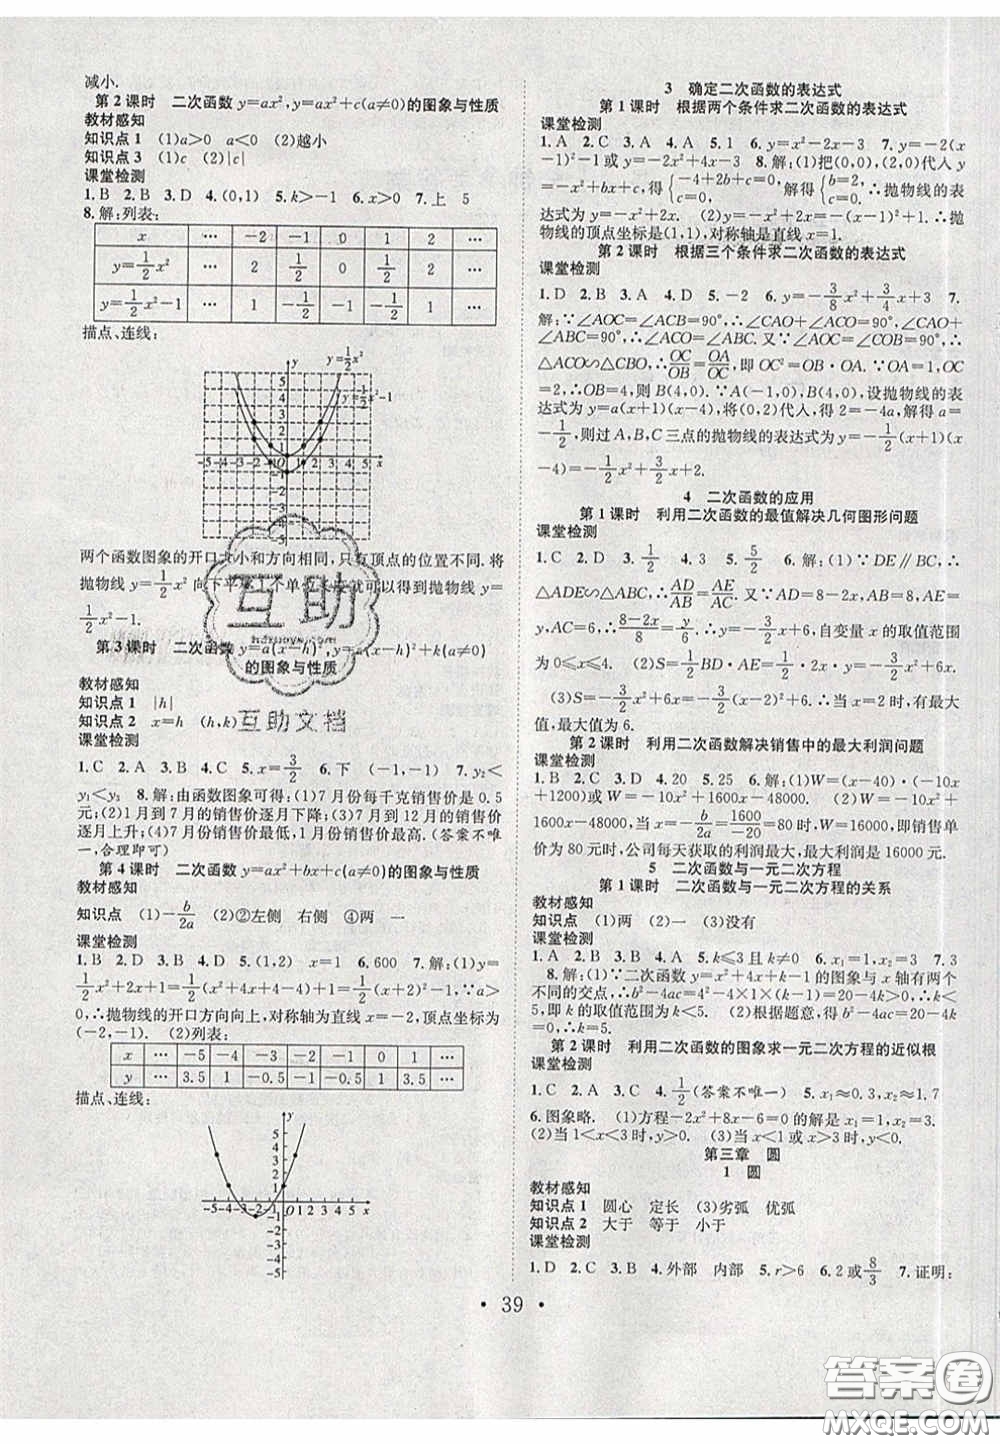 减小.
第2课时　二次函数 y=ax²,y=ax²+c(a≠0)的图象与性质
教材感知
知识点1　(1)a>0　a<0　(2)越小
知识点3　(1)c　(2)|c|
课堂检测
1. B　2. B　3. D　4. (0,1)　5. k>-1　6. x>0　7. 上　5
8. 解:列表:
x　…　-2　-1　0　1　2　…
y=1/2x²　…　2　1/2　0　1/2　2　…
y=1/2x²-1　…　1　-1/2　-1　-1/2　1　…
描点、连线:
y=1/2x²
y=1/2x²-1
两个函数图象的开口大小和方向相同,只有顶点的位置不同.将
抛物线 y=1/2x² 向下平移1个单位长度就可以得到抛物线 y=
1/2x²-1.
第3课时　二次函数 y=a(x-h)²,y=a(x-h)²+k(a≠0)
的图象与性质
教材感知
知识点1　|h|
知识点2　x=h　(h,k)
课堂检测
1. C　2. A　3. B　4. C　5. x=3/2　6. 下　(-1,-1)　7. y₂<
y₁<y₃　8. 解:由函数图象可得:(1)7月份每千克销售价是0.5
元;(2)1月到7月的销售价逐月下降;(3)7月到12月的销售价
逐月上升;(4)7月份销售价最低,1月份销售价最高.(答案不唯
一,合理即可)
第4课时　二次函数 y=ax²+bx+c(a≠0)的图象与性质
教材感知
知识点　(1)-b/2a　(2)②左侧　右侧　④两　一
课堂检测
1. B　2. D　3. B　4. D　5. (1,2)　x=1　6. 600　7. 解:(1)y=
1/2x²+2x+1=1/2(x²+4x+4-4)+1=1/2(x+2)²-1,∵a>
0,∴抛物线的开口方向向上,对称轴为直线 x=-2,顶点坐标为
(-2,-1).　(2)列表:
x　…　-5　-4　-3　-2　-1　0　1　…
y　…　3.5　1　-0.5　-1　-0.5　1　3.5　…
描点、连线:
3　确定二次函数的表达式
第1课时　根据两个条件求二次函数的表达式
课堂检测
1. A　2. C　3. A　4. A　5. D　6. y=x²-2x-3　7. y=-2(x
-1)²-1或 y=-2x²+4x-3　8. 解:(1)把(0,0),(2,0)代入 y
=x²+bx+c,得{c=0,-4+2b+c=0,　解得{b=2,c=0,　∴抛物线的表
达式为 y=-x²+2x.　(2)y=-x²+2x=-(x-1)²+1,∴抛
物线的顶点坐标是(1,1),对称轴是直线 x=1.
第2课时　根据三个条件求二次函数的表达式
课堂检测
1. D　2. D　3. D　4. D　5. -2　6. y=-3/8x²+3/4x+3　7.
解:∵∠AOC=∠ACB=90°,∴∠CAO+∠ACO=90°,∠CAO+
∠ABC=90°,∴∠ACO=∠ABC.又∵∠AOC=∠COB=90°,
∴△ACO∽△CBO,∴OC/OB=OA/OC,即 OC²=OB·OA.∵OA=1,OC
=2,∴OB=4,则 B(4,0).∵A(-1,0),B(4,0),设抛物线的表
达式为 y=a(x+1)(x-4),将(0,2)代入,得2=-4a,解得 a=
-1/2,则过 A,B,C 三点的抛物线的表达式为 y=-1/2(x+1)(x
-4)=-1/2x²+3/2x+2.
4　二次函数的应用
第1课时　利用二次函数的最值解决几何图形问题
课堂检测
1. C　2. C　3. 1/2　4. 1/2　5. 5/2　6. 解:(1)∵DE∥BC,∴
△ADE∽△ABC,∴AD/AB=AE/AC.又∵AD=8-2x,AB=8,AE=
y,AC=6,∴8-2x/8=y/6.∴y=-3/2x+6,自变量 x 的取值范围
为0≤x≤4.　(2)S=1/2BD·AE=1/2·2x·y=-3/2x²+6x.
(3)S=-3/2x²+6x=-3/2(x-2)²+6,∴当 x=2时,有最大
值,最大值为6.
第2课时　利用二次函数解决销售中的最大利润问题
课堂检测
1. B　2. C　3. D　4. 20　5. 25　6. 解:(1)W=(x-40)·(-10x
+1200)或 W=-10x²+1600x-48000.　(2)W=-10x²+
1600x-48000,当 x=-b/2a=-1600/-20=80时,W=16000,即销售单
价为80元时,公司每天获取的利润最大,最大利润是16000元.
5　二次函数与一元二次方程
第1课时　二次函数与一元二次方程的关系
教材感知
知识点　(1)两　(2)一　(3)没有
课堂检测
1. A　2. B　3. C　4. A　5. k≤3且 k≠0　6. x₁=1,x₂=2　7. 3
8. 解:(1)∵二次函数 y=x²+4x+k-1的图象与 x 轴有两个
不同的交点,∴b²-4ac=4²-4×1×(k-1)=20-4k>0.∴k<
5,即 k 的取值范围为 k<5.　(2)根据题意,得 b²-4ac=20-4k
=0,∴k=5.
第2课时　利用二次函数的图象求一元二次方程的近似根
课堂检测
1. C　2. A　3. C　4. 1/2(答案不唯一)　5. x₁≈0.3,x₂≈1.7
6. 图象略.　(1)方程-2x²+8x-6=0的解是 x₁=1,x₂=3.
(2)当1<x<3时,y>0.　(3)当 x<1或 x>3时,y<0.
第三章　圆
1　圆
教材感知
知识点1　圆心　定长　(3)劣弧　优弧
知识点2　大于　等于　小于
课堂检测
1. D　2. C　3. B　4. 外部　内部　5. r>6　6. 2或8/3　7. 证明:
· 39 ·
互助
互助文档
答案圈
MXQE.COM